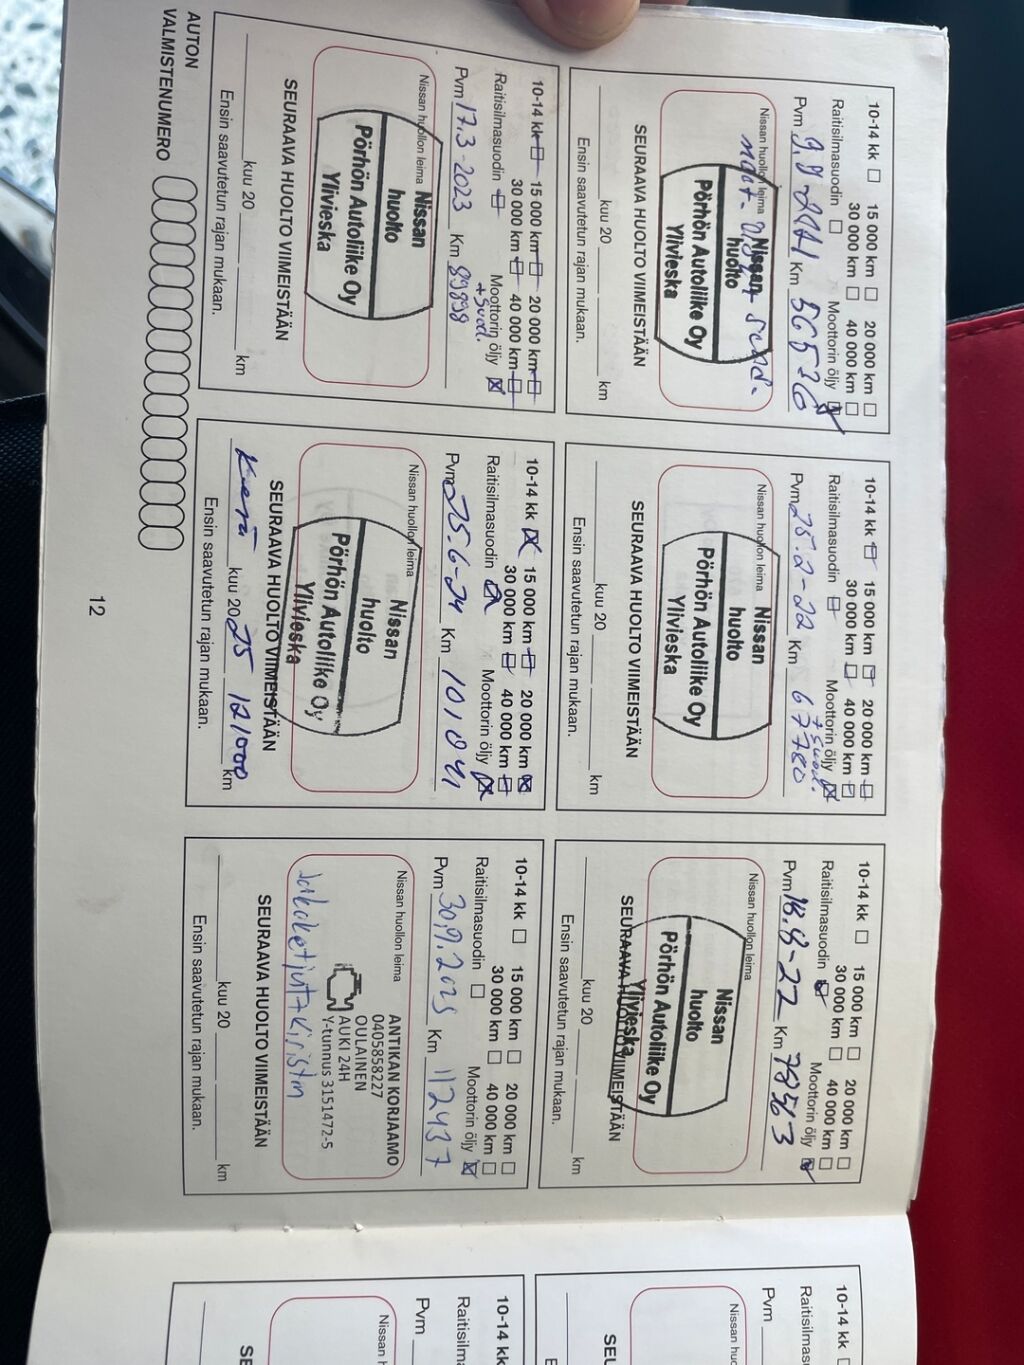 10-14 kk 15 000 km 20 000 km
30 000 km 40 000 km
Raitisilmasuodin Moottorin öljy
Pvm Km 56536
Nissan huollon leima
Nissan
huolto
Pörhön Autoliike Oy
Ylivieska
SEURAAVA HUOLTO VIIMEISTÄÄN
kuu 20 km
Ensin saavutetun rajan mukaan.
10-14 kk 15 000 km 20 000 km
30 000 km 40 000 km
Raitisilmasuodin Moottorin öljy
+ suod.
Pvm 25.2-22 Km 67780
Nissan huollon leima
Nissan
huolto
Pörhön Autoliike Oy
Ylivieska
SEURAAVA HUOLTO VIIMEISTÄÄN
kuu 20 km
Ensin saavutetun rajan mukaan.
10-14 kk 15 000 km 20 000 km
30 000 km 40 000 km
Raitisilmasuodin Moottorin öljy
Pvm 18.8-22 Km 78563
Nissan huollon leima
Nissan
huolto
Pörhön Autoliike Oy
Ylivieska
SEURAAVA HUOLTO VIIMEISTÄÄN
kuu 20 km
Ensin saavutetun rajan mukaan.
10-14 kk
Raitisilmasu
Pvm
Nissan huo
SEU
E
10-14 kk 15 000 km 20 000 km
30 000 km 40 000 km
Raitisilmasuodin Moottorin öljy
+ suod.
Pvm 17.3-2023 Km 89898
Nissan huollon leima
Nissan
huolto
Pörhön Autoliike Oy
Ylivieska
SEURAAVA HUOLTO VIIMEISTÄÄN
kuu 20 km
Ensin saavutetun rajan mukaan.
10-14 kk 15 000 km 20 000 km
30 000 km 40 000 km
Raitisilmasuodin Moottorin öljy
Pvm 25.6-24 Km 101041
Nissan huollon leima
Nissan
huolto
Pörhön Autoliike Oy
Ylivieska
SEURAAVA HUOLTO VIIMEISTÄÄN
Kesä kuu 2025 121000 km
Ensin saavutetun rajan mukaan.
10-14 kk 15 000 km 20 000 km
30 000 km 40 000 km
Raitisilmasuodin Moottorin öljy
Pvm 30.9.2025 Km 112437
Nissan huollon leima
ANTIKAN KORJAAMO
0405858227
OULAINEN
AUKI 24H
Y-tunnus 3151472-5
Jakoketjut+kiristin
SEURAAVA HUOLTO VIIMEISTÄÄN
kuu 20 km
Ensin saavutetun rajan mukaan.
10-14 kk
Raitisilma
Pvm
Nissan h
SE
AUTON
VALMISTENUMERO
12